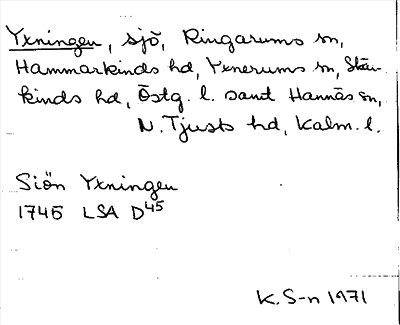 Yxningen, sjö, Ringarums sn,
Hammarkinds hd, Yxnerums sn, Skär-
kinds hd, Östg. l. samt Hannäs sn,
N. Tjusts hd, Kalm. l.
Siön Yxningen
1746 LSA D45
K. S-n 1971